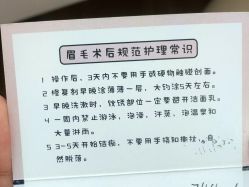 眉毛术后规范护理常识
1 操作后、3天内不要用手或硬物触碰创面。
2 修复剂早晚涂薄薄一层，大约涂5天左右。
3 早晚洗漱时，纹绣部位一定要避开洁面乳。
4 一周内禁止游泳、泡澡、汗蒸、泡温泉和
大量淋雨。
5 3-5天开始结痂，不要用手搔和撕扯，自
然脱落。